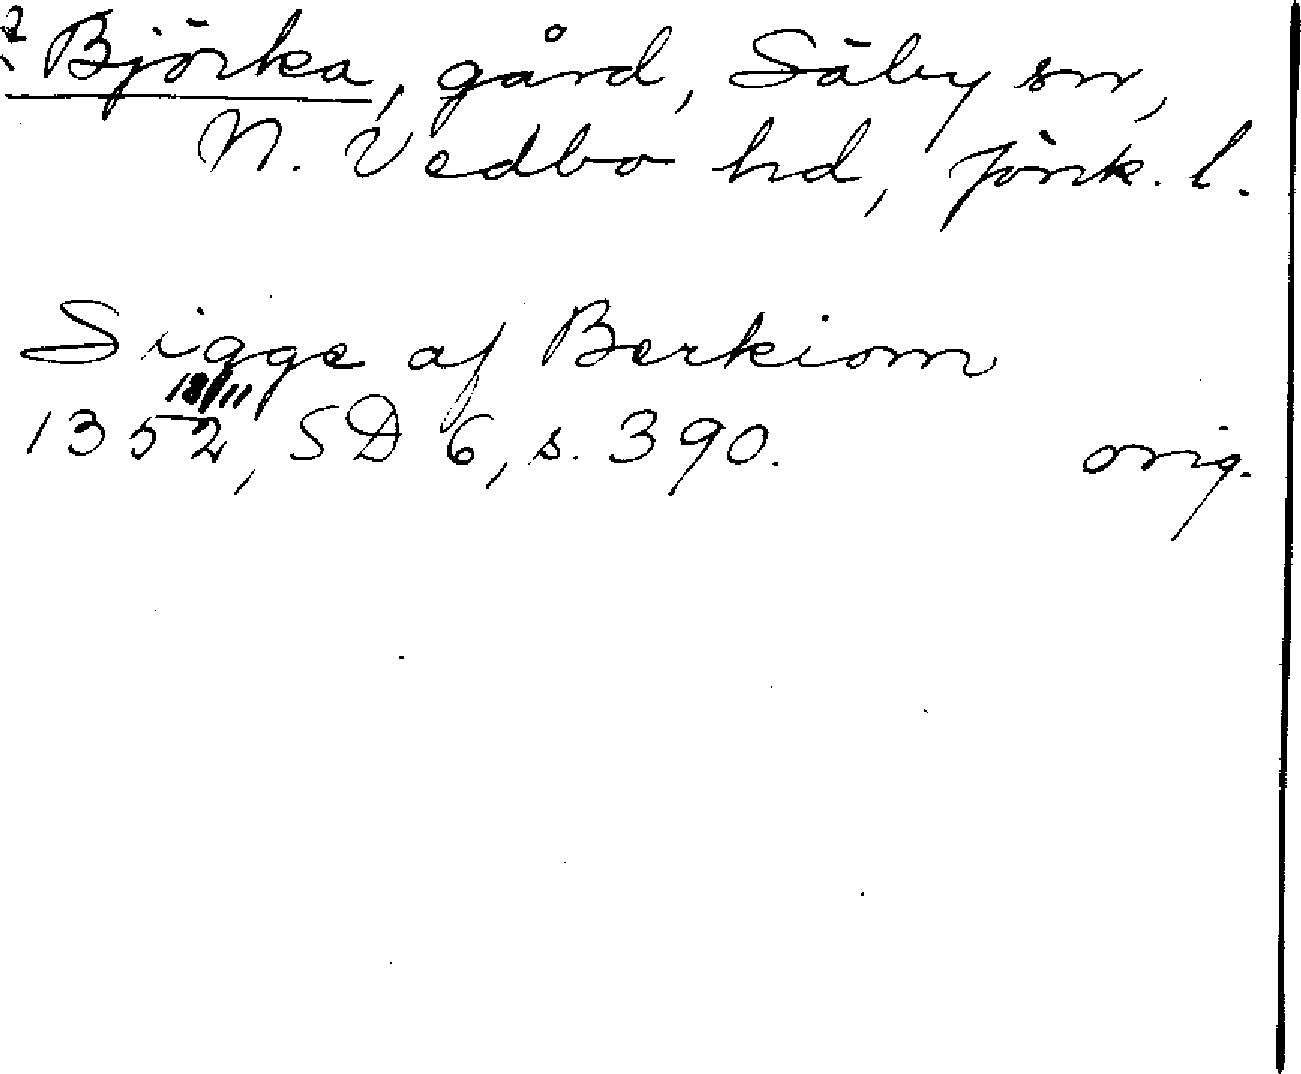 ? Björka, gård, Säby sn,
N. Vedbo hd, Jönk. l.
Sigge af Berkiom
1352, SD 6, s. 390. orig.